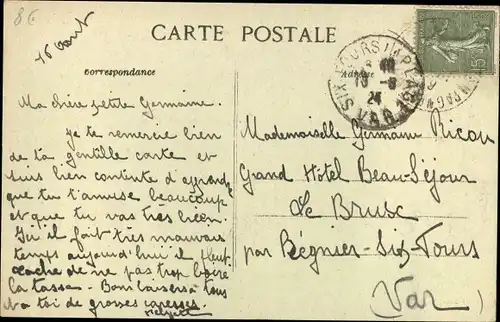 8€
16 Août
CARTE POSTALE
correspondance
Adresse
SIX-FOURS LA PLAGE
VAR
24
15
Ma chère petite Germaine.
Je te remercie bien
de ta gentille carte et
suis bien contente d'apprendre
que tu t'amuse beaucoup
et que tu vas très bien.
Ici il fait très mauvais
temps aujourd'hui il pleut.
tache de ne pas trop boire
la tasse - Bons baisers à tous
à toi de grosses caresses.
Mademoiselle Germaine Ricou
Grand Hôtel Beau-Séjour
Le Brusc
par Régnier-Six-Fours
(Var)